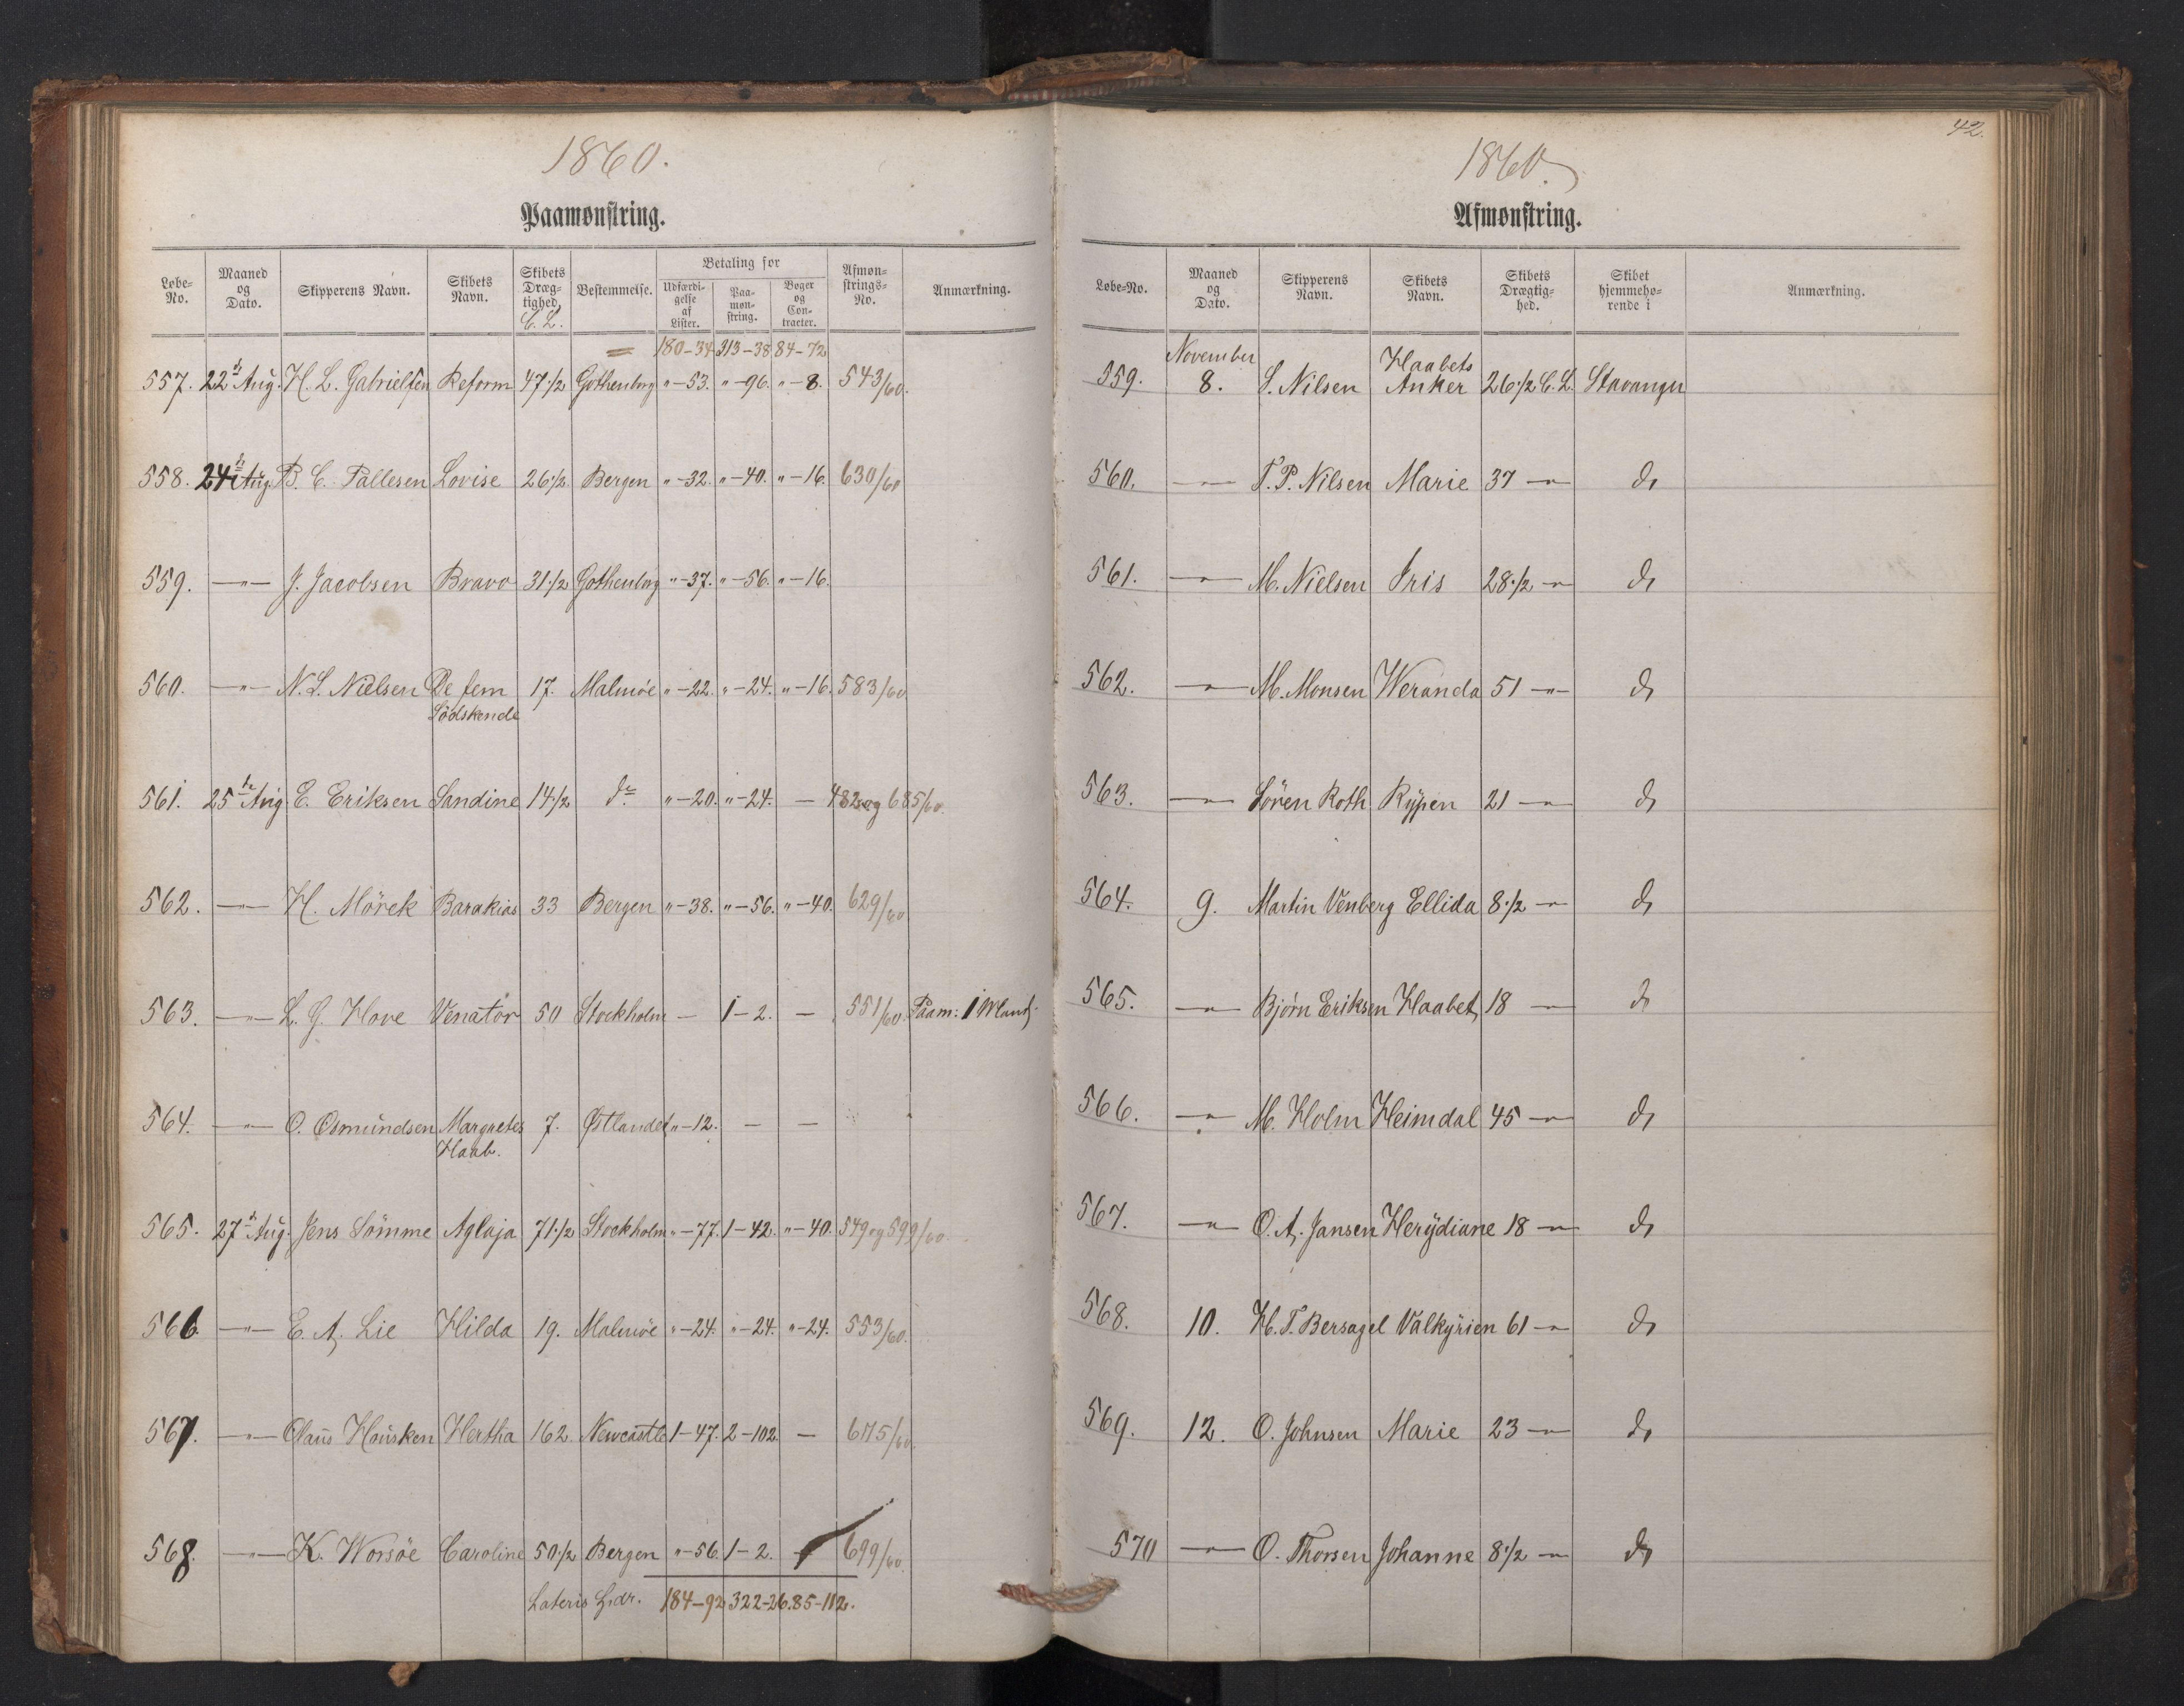 1860.
Paamønstring.
Løbe-No. | Maaned og Dato. | Skipperens Navn. | Skibets Navn. | Skibets Dræg-tighed, C. L. | Bestemmelse. | Betaling for | Udfærdi-gelse af Lister. | Paa-møn-string. | Bøger og Con-tracter. | Afmøn-strings-No. | Anmærkning.
180-34 | 313-38 | 84-72
557. | 22de Aug. | H. L. Gabrielsen | Reform | 47 1/2 | Gothenborg | "-53. | "-96. | "-8. | 543/60.
558. | 24de Aug. | B. C. Pallesen | Lovise | 26 1/2 | Bergen | "-32. | "-40. | "-16. | 630/60
559. | —"— | J. Jacobsen | Bravo | 31 1/2 | Gothenborg | "-37. | "-56. | "-16.
560. | —"— | N. S. Nielsen | De fem Södskende | 17. | Malmöe | "-22. | "-24. | "-16. | 583/60
561. | 25de Aug. | E. Eriksen | Sandine | 14 1/2 | do | "-20. | "-24. | — | 482 og 685/60.
562. | —"— | H. Mörck | Barakias | 33 | Bergen | "-38. | "-56. | "-40. | 629/60
563. | —"— | L. G. Hove | Venator | 50 | Stockholm | — | 1-2. | — | 551/60. | Paam: 1 Mand.
564. | —"— | O. Osmundsen | Margretes Haab. | 7. | Østlandet | "-12. | — | —
565. | 27de Aug. | Jens Sömme | Aglaja | 71 1/2 | Stockholm | "-77. | 1-42. | "-40. | 549 og 599/60
566. | —"— | E. A. Lie | Hilda | 19. | Malmöe | "-24. | "-24. | "-24. | 553/60.
567. | —"— | Olaus Housken | Hertha | 162. | Newcastle | 1-47. | 2-102. | — | 675/60.
568. | —"— | K. Worsöe | Caroline | 50 1/2 | Bergen | "-56. | 1-2. | — | 699/60.
Lateris | 184-92 | 322-26. | 85-112.
42.
1860.
Afmønstring.
Løbe-No. | Maaned og Dato. | Skipperens Navn. | Skibets Navn. | Skibets Drægtig-hed. | Skibet hjemmehø-rende i | Anmærkning.
559. | November 8. | S. Nilsen | Haabets Anker | 26 1/2 C. L. | Stavanger
560. | —"— | T. P. Nilsen | Marie | 37 —"— | do
561. | —"— | M. Nielsen | Iris | 28 1/2 —"— | do
562. | —"— | M. Monsen | Weranda | 51 —"— | do
563. | —"— | Sören Roth | Rypen | 21 —"— | do
564. | 9. | Martin Venberg | Ellida | 8 1/2 —"— | do
565. | —"— | Bjørn Eriksen | Haabet | 18 —"— | do
566. | —"— | M. Holm | Heimdal | 45 —"— | do
567. | —"— | O. A. Jansen | Herydiane | 18 —"— | do
568. | 10. | H. T. Bersagel | Valkyrien | 61 —"— | do
569. | 12. | O. Johnsen | Marie | 23 —"— | do
570 | —"— | O. Thorsen | Johanne | 8 1/2 —"— | do